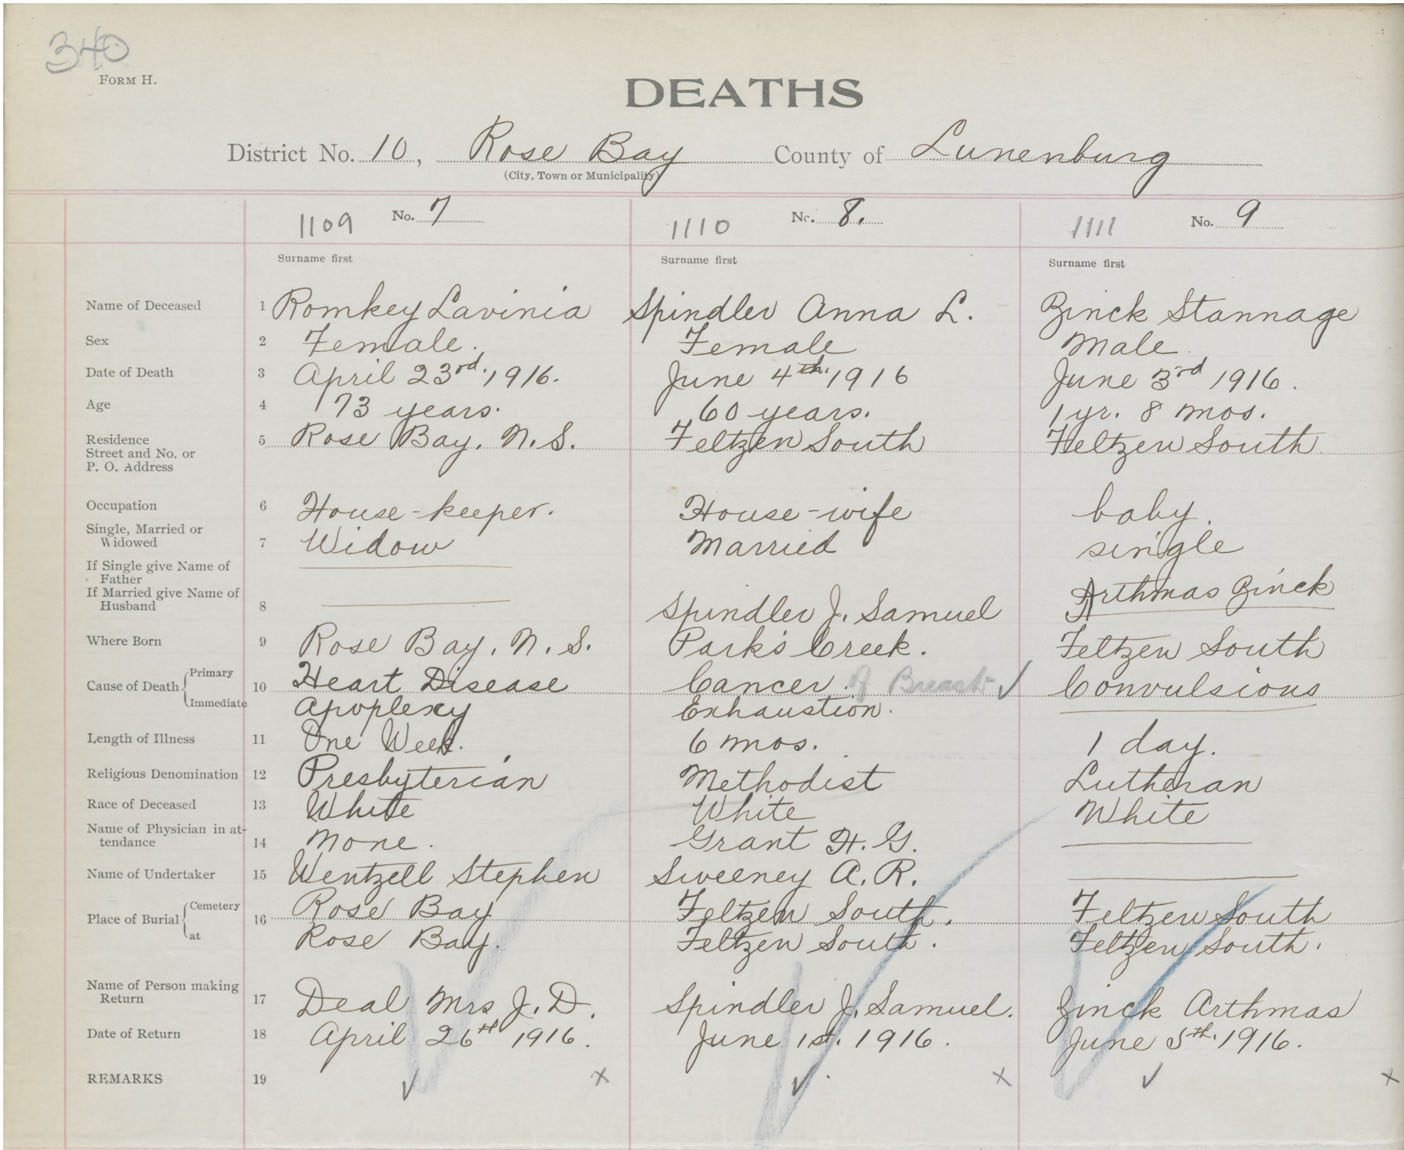 340
FORM H.
DEATHS
District No. 10, Rose Bay County of Lunenburg
(City, Town or Municipality)
1109 No. 7 1110 No. 8. 1111 No. 9
Surname first Surname first Surname first
Name of Deceased 1 Romkey Lavinia Spindler Anna L. Zinck Stannage
Sex 2 Female. Female Male
Date of Death 3 April 23rd. 1916. June 4th. 1916 June 3rd 1916.
Age 4 73 years. 60 years. 1 yr. 8 mos.
Residence
Street and No. or 5 Rose Bay, N.S. Feltzen South Feltzen South
P. O. Address
Occupation 6 House-keeper. House-wife baby.
Single, Married or
Widowed 7 Widow Married single
If Single give Name of
Father
If Married give Name of
Husband 8 Spindler J. Samuel Arthmas Zinck
Where Born 9 Rose Bay, N. S. Park's Creek. Feltzen South
Cause of Death Primary 10 Heart Disease Cancer. of Breast ✓ Convulsions
Immediate Apoplexy Exhaustion.
Length of Illness 11 One Week. 6 mos. 1 day.
Religious Denomination 12 Presbyterian Methodist Lutheran
Race of Deceased 13 White White White
Name of Physician in at-
tendance 14 None. Grant H. G.
Name of Undertaker 15 Wentzell Stephen Sweeney A. R.
Place of Burial Cemetery 16 Rose Bay Feltzen South. Feltzen South
at Rose Bay. Feltzen South. Feltzen South.
Name of Person making
Return 17 Deal Mrs J. D. Spindler J. Samuel. Zinck Arthmas
Date of Return 18 April 26th 1916. June 1st. 1916. June 5th. 1916.
REMARKS 19 ✓ x ✓ x ✓ x